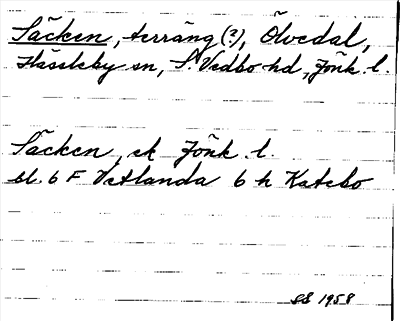 Säcken, terräng (?), Ölvedal,
Hässleby sn, S. Vedbo hd, Jönk. l.
Säcken, ek Jönk. l.
bl. 6 F Vetlanda 6 h Katebo
SB 1958